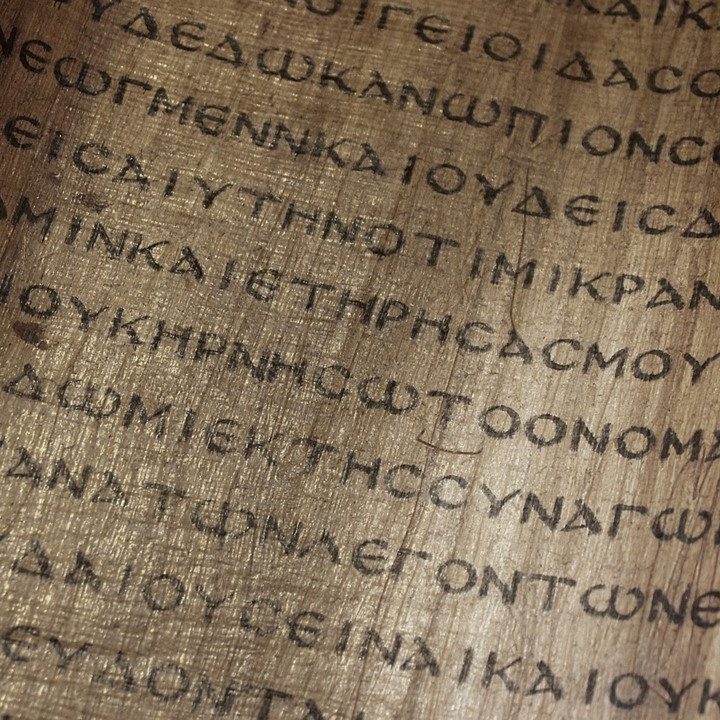 ΚΑΙΚ
ΟΙΓΕΙΟΙΔΑCΟ
ΥΔΕΔΩΚΑΝΩΠΙΟΝCΟ
ΝΕΩΓΜΕΝΝΚΑΙΟΥΔΕΙCΔ
ΕΙCΑΙΥΤΗΝΟΤΙΜΙΚΡΑΝ
ΑΜΙΝΚΑΙΕΤΗΡΗCΑCΜΟΥ
ΙΟΥΚΗΡΝΗCΩΤΟΟΝΟΜΑ
ΔΩΜΙΕΚΤΗCCΥΝΑΓΩ
ΑΝΑΤΩΝΛΕΓΟΝΤΩΝΕ
ΥΔΑΙΟΥCΕΙΝΑΙΚΑΙΟΥΚ
ΕΥΔΟΝΤΑΙ